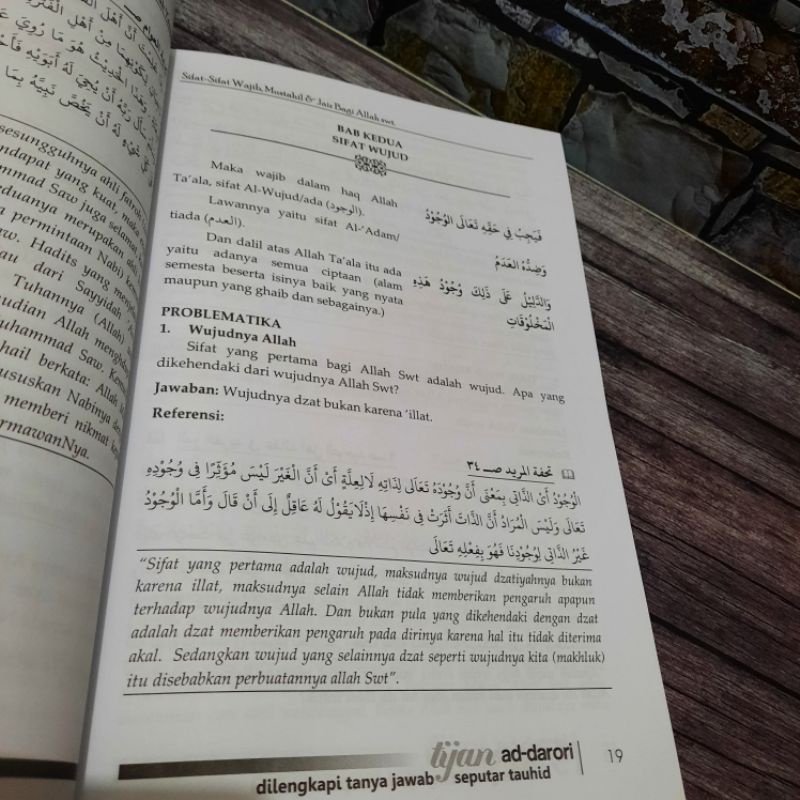 ت أَنَّ أَهْلَ
لِكَوْنِهِمَا مِنْ أَهْلِ
وَهَذَا الْحَدِيْثُ هُوَ مَا رُوِيَ
سَأَلَ رَبَّهُ أَنْ يُحْيِيَ لَهُ أَبَوَيْهِ
لَهُ أَنْ يَخُصَّ نَبِيَّهُ بِمَا
sesungguhnya ahli fatroh
ndapat yang kuat, maka
mmad Saw juga selamat
eduanya merupakan ahli
a permintaan Nabi)
w. Hadits yang
au dari Sayyidah
Tuhannya (Allah)
udian Allah
uhammad Saw.
hail berkata: Allah
ususkan Nabinya
memberi nikmat
ermawanNya.
Sifat-Sifat Wajib, Mustahil & Jaiz Bagi Allah swt.
BAB KEDUA
SIFAT WUJUD
Maka wajib dalam haq Allah
Ta'ala, sifat Al-Wujud/ada (الوجود).
فَيَجِبُ فِي حَقِّهِ تَعَالَى الْوُجُوْدُ
Lawannya yaitu sifat Al-'Adam/
tiada (العدم).
وَضِدُّهُ الْعَدَمُ
Dan dalil atas Allah Ta'ala itu ada
yaitu adanya semua ciptaan (alam
semesta beserta isinya baik yang nyata
maupun yang ghaib dan sebagainya.)
وَالدَّلِيْلُ عَلَى ذَلِكَ وُجُوْدُ هَذِهِ
الْمَخْلُوْقَاتِ
PROBLEMATIKA
1. Wujudnya Allah
Sifat yang pertama bagi Allah Swt adalah wujud. Apa yang
dikehendaki dari wujudnya Allah Swt?
Jawaban: Wujudnya dzat bukan karena 'illat.
Referensi:
تحفة المريد صـ ٣٤
الْوُجُوْدُ أَيْ الذَّاتِى بِمَعْنَى أَنَّ وُجُوْدَهُ تَعَالَى لِذَاتِهِ لَا لِعِلَّةٍ أَيْ أَنَّ الْغَيْرَ لَيْسَ مُؤَثِّرًا فِى وُجُوْدِهِ
تَعَالَى وَلَيْسَ الْمُرَادُ أَنَّ الذَّاتَ أَثَرَتْ فِى نَفْسِهَا إِذْلَايَقُوْلُ لَهُ عَاقِلٌ إِلَى أَنْ قَالَ وَأَمَّا الْوُجُوْدُ
غَيْرُ الذَّاتِى لِوُجُوْدِنَا فَهُوَ بِفِعْلِهِ تَعَالَى
"Sifat yang pertama adalah wujud, maksudnya wujud dzatiyahnya bukan
karena illat, maksudnya selain Allah tidak memberikan pengaruh apapun
terhadap wujudnya Allah. Dan bukan pula yang dikehendaki dengan dzat
adalah dzat memberikan pengaruh pada dirinya karena hal itu tidak diterima
akal. Sedangkan wujud yang selainnya dzat seperti wujudnya kita (makhluk)
itu disebabkan perbuatannya allah Swt".
tijan ad-darori
dilengkapi tanya jawab seputar tauhid
19